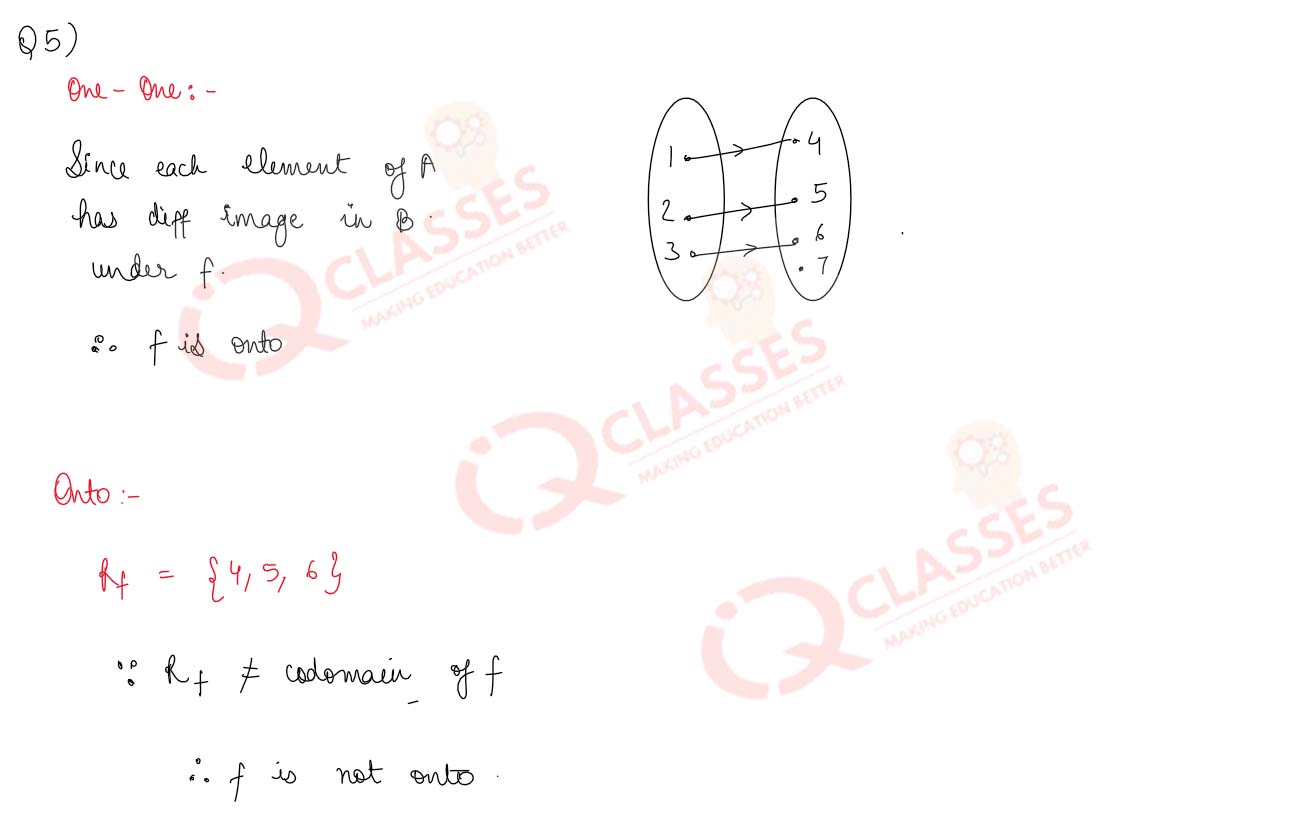 Q5)
One - One :-
Since each element of A
has diff image in B.
under f.
∴ f is onto
1 4
2 5
3 6
7
Onto :-
Rf = {4, 5, 6}
∵ Rf ≠ codomain of f
∴ f is not onto.
iQ CLASSES
MAKING EDUCATION BETTER
iQ CLASSES
MAKING EDUCATION BETTER
iQ CLASSES
MAKING EDUCATION BETTER